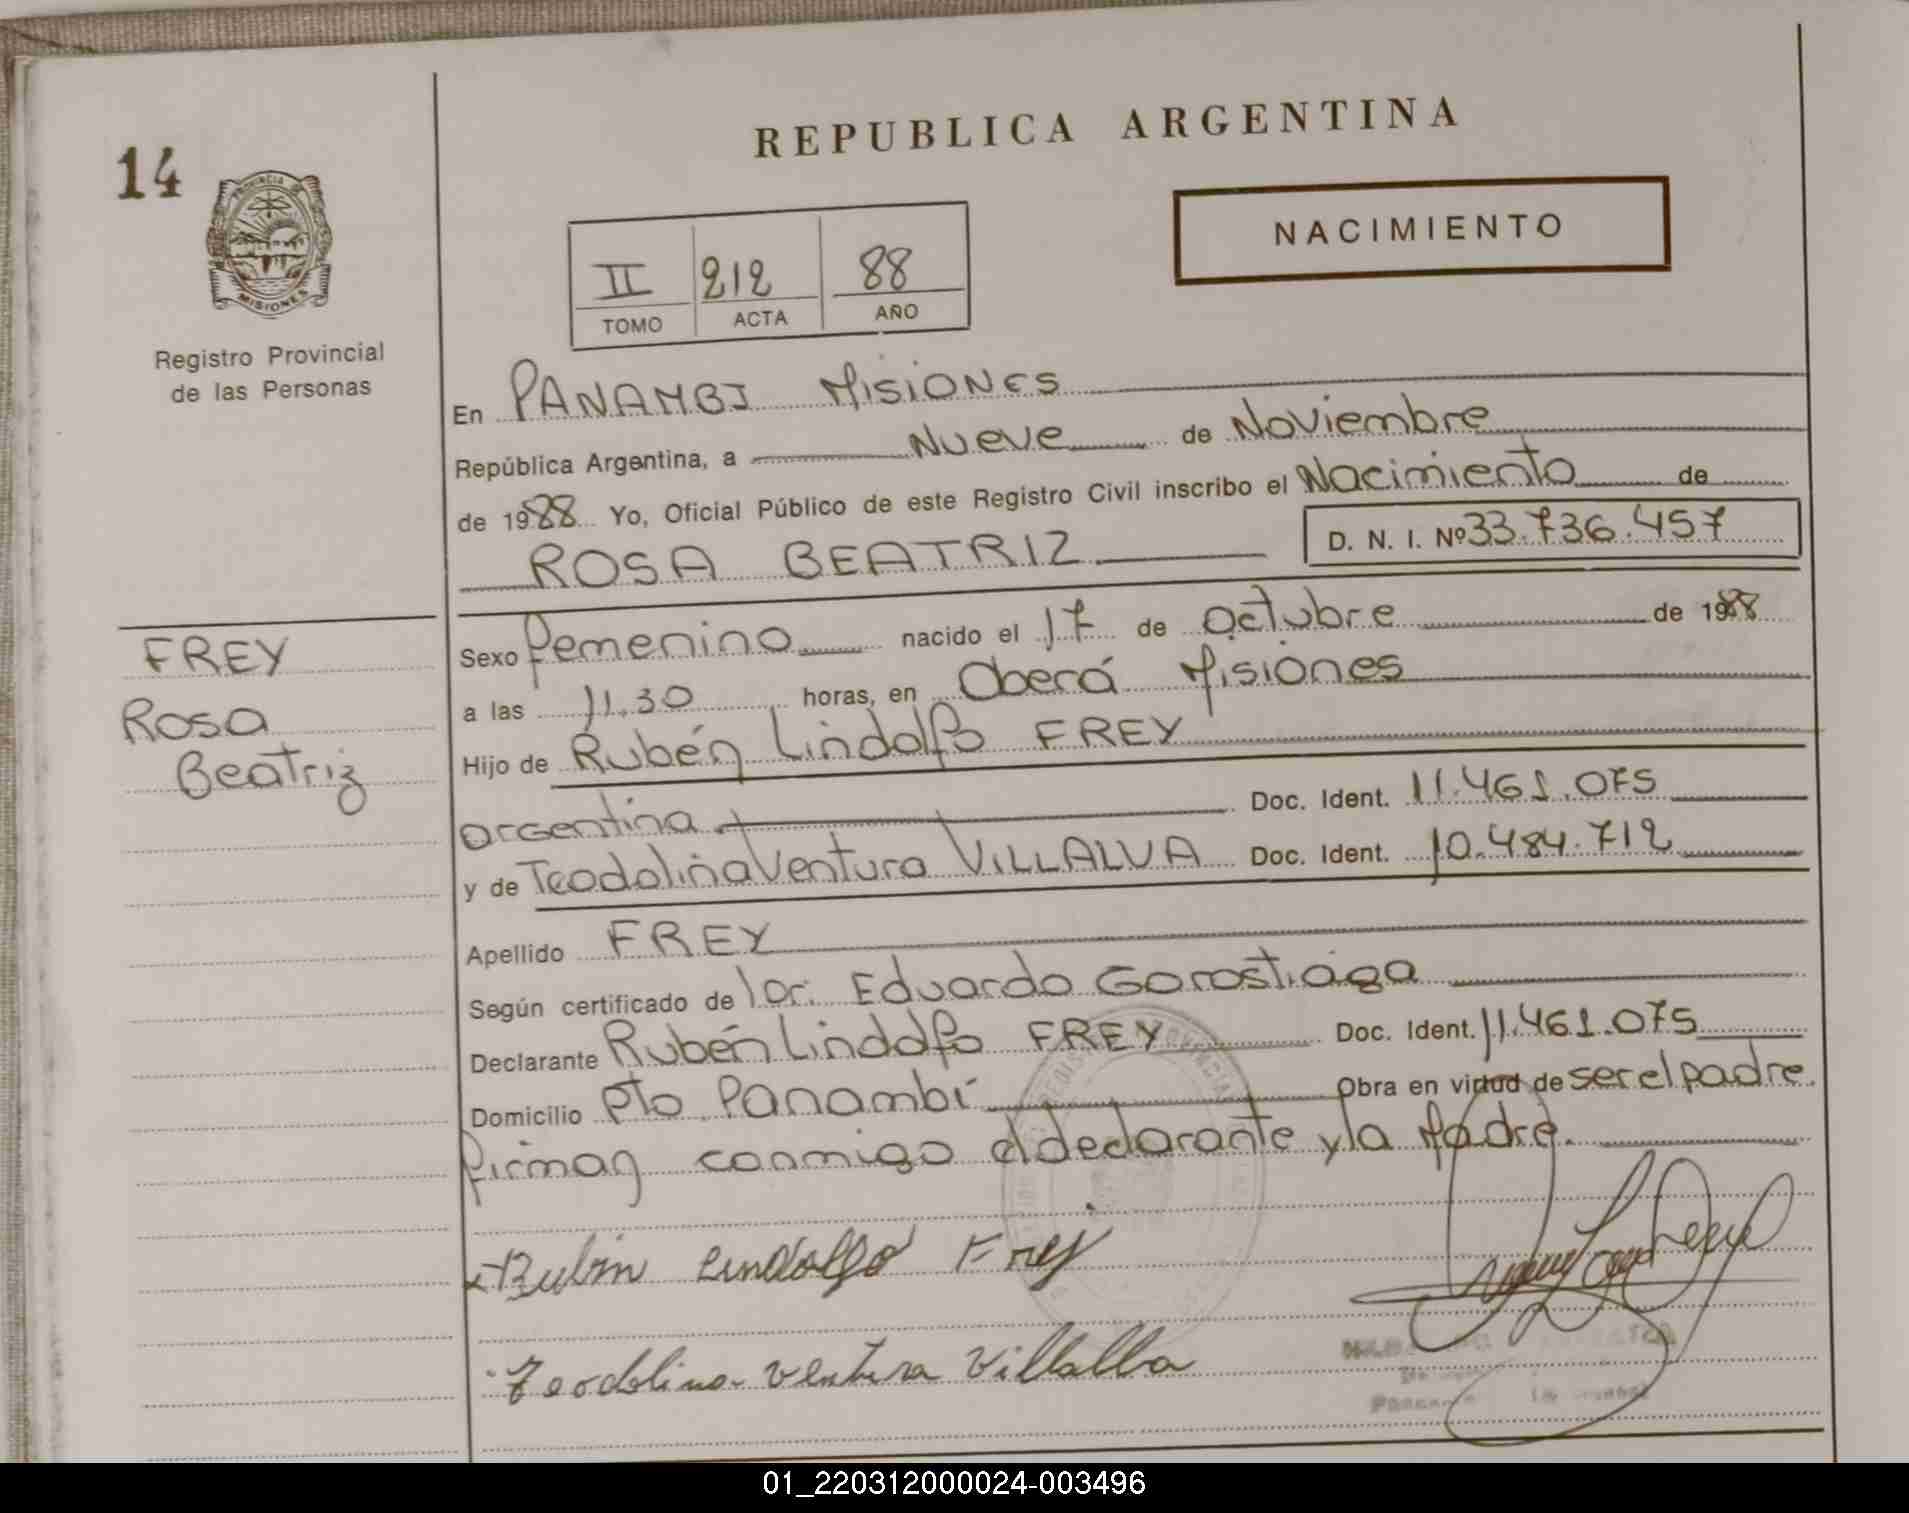 14
PROVINCIA DE
MISIONES
Registro Provincial
de las Personas
REPUBLICA ARGENTINA
NACIMIENTO
II 212 88
TOMO ACTA AÑO
En PANAMBI MISIONES
República Argentina, a Nueve de Noviembre
de 1988 Yo, Oficial Público de este Registro Civil inscribo el Nacimiento de
ROSA BEATRIZ D. N. I. Nº 33.736.457
FREY
Rosa
Beatriz
Sexo femenino nacido el 17 de octubre de 1988
a las 11.30 horas, en Oberá Misiones
Hijo de Rubén Lindolfo FREY
argentina Doc. Ident. 11.461.075
y de Teodolina Ventura VILLALVA Doc. Ident. 10.484.712
Apellido FREY
Según certificado de Dr. Eduardo Gorostiaga
Declarante Rubén Lindolfo FREY Doc. Ident. 11.461.075
Domicilio Pto Panambi Obra en virtud de ser el padre.
firman conmigo el declarante y la Madre.
Rubin Lindolfo Frey
Teodolina Ventura Villalba
01_220312000024-003496